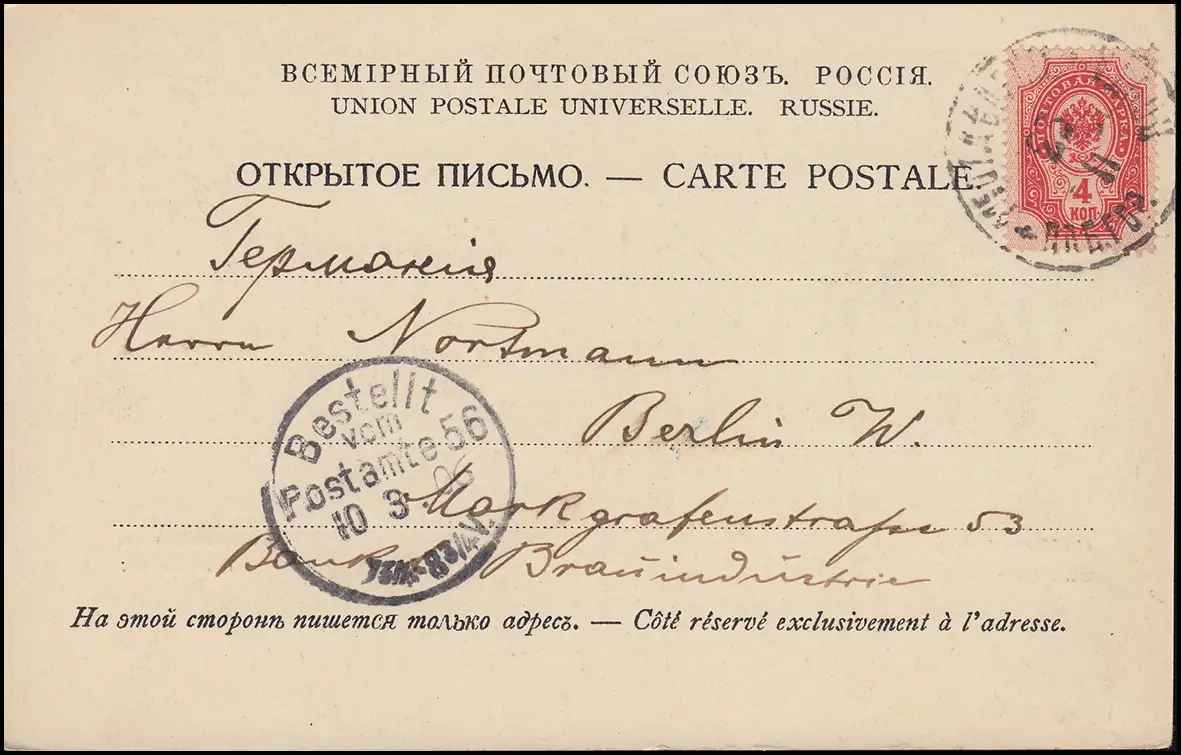 ВСЕМІРНЫЙ ПОЧТОВЫЙ СОЮЗЪ. РОССІЯ.
UNION POSTALE UNIVERSELLE. RUSSIE.
ОТКРЫТОЕ ПИСЬМО. — CARTE POSTALE.
ПОЧТОВАЯ МАРКА.
4
КОП.
Германія
Herrn Nortmann
Berlin W.
Markgrafenstrasse 53
Bank Brauindustrie
Bestellt
vom
Postamte 56
10 3 06
На этой сторонѣ пишется только адресъ. — Côté réservé exclusivement à l'adresse.